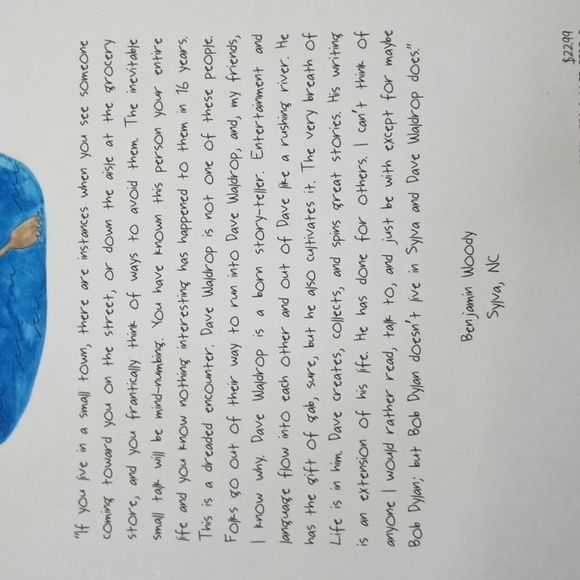 "If you live in a small town, there are instances when you see someone
coming toward you on the street, or down the aisle at the grocery
store, and you frantically think of ways to avoid them. The inevitable
small talk will be mind-numbing. You have known this person your entire
life and you know nothing interesting has happened to them in 76 years.
This is a dreaded encounter. Dave Waldrop is not one of these people.
Folks go out of their way to run into Dave Waldrop, and, my friends,
I know why. Dave Waldrop is a born story-teller. Entertainment and
language flow into each other and out of Dave like a rushing river. He
has the gift of gab, sure, but he also cultivates it. The very breath of
Life is in him. Dave creates, collects, and spins great stories. His writing
is an extension of his life. He has done for others. I can't think of
anyone I would rather read, talk to, and just be with except for maybe
Bob Dylan; but Bob Dylan doesn't live in Sylva and Dave Waldrop does."
Benjamin Woody
Sylva, NC
$22.99